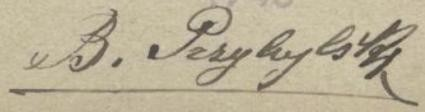 B. Przybylski